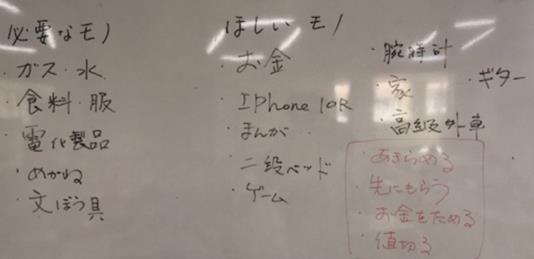 必要なモノ
・ガス・水
・食料・服
・電化製品
・めがね
・文ぼう具
ほしいモノ
・お金
・IPhone 10R
・まんが
・二段ベッド
・ゲーム
・腕時計
・家
・高級外車
・ギター
・あきらめる
・先にもらう
・お金をためる
・値切る